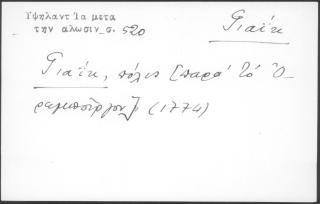 Ὑψηλαντ Τα μετα
την αλωσιν σ. 520
Γιαΐκ
Γιαΐκ, πόλις [παρά τό Ὀ-
ρεμπούργον] (1774)